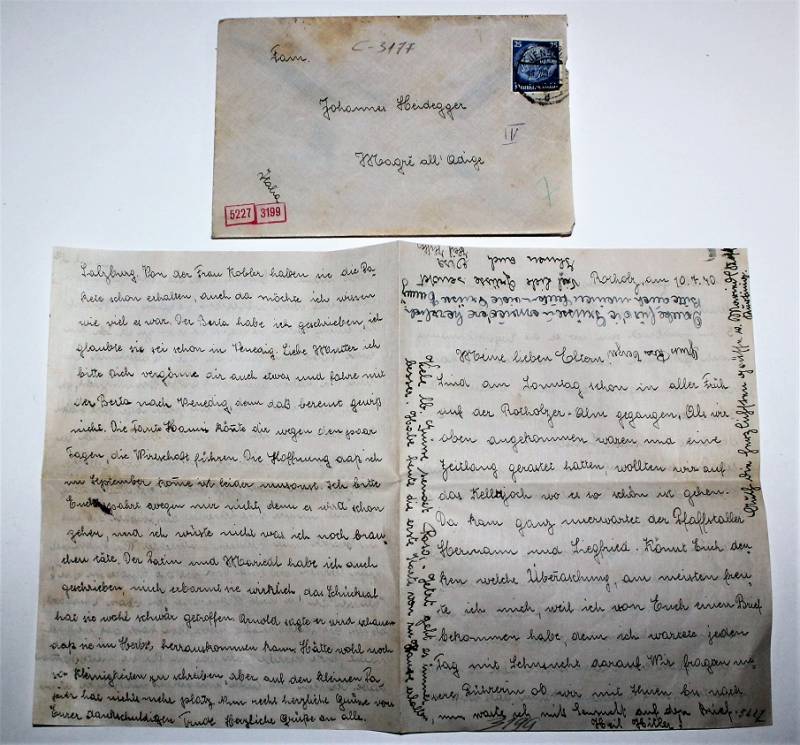 C-3177
Fam.
25
Johannes Heidegger
IV
Magré all' Adige
Italia
5227 3199
Salzburg. Von der Frau Kobler haben sie die Pa-
kete schon erhalten, auch da möchte ich wissen
wie viel es war. Der Berta habe ich geschrieben, ich
glaubte sie sei schon in Venedig. Liebe Mutter ich
bitte Dich vergönne dir auch etwas und fahre mit
der Berta nach Venedig, denn daß bereust gewiß
nicht. Die Tante Hanni könte dir wegen den paar
Tagen, die Wirtschaft führen. Die Hoffnung daß ich
im September kome ist leider umsonst. Ich bitte
Euch spahrt wegen mir nicht, denn es wird schon
gehen, und ich wüste nicht was ich noch brau-
chen täte. Der Patin und Moriedl habe ich auch
geschrieben, mich erbarmt sie wirklich, das Schicksal
hat sie wohl schwär getroffen. Arnold sagte er wird schauen
daß sie im Herbst herrauskommen kann. Hätte wohl noch
Kleinigkeiten zu schreiben aber auf den kleinen Pa-
pier hat nichts mehr platz. Nun recht herzliche Grüße von
Eurer dankschuldigen Trude Herzliche Grüße an alle.
Rotholz, am 10.7.40.
Meine lieben Eltern!
Sind am Sonntag schon in aller Früh
auf der Rotholzer-Alm gegangen. Als wir
oben angekommen waren und eine
Zeitlang gerastet hatten, wollten wir auf
das Kellerjoch wo es so schön ist gehen.
Da kam ganz unerwartet der Pfaffstaller
Hermann und Siegfried. Könnt Euch den-
ken welche Überaschung, am meisten freu-
te ich mich, weil ich von Euch einen Brief
bekommen habe, denn ich wartete jeden
Tag mit Sehnsucht darauf. Wir fragten un-
sere Führerin ob wir mit Ihnen
nun warte ich mit Sehnsucht auf den Brief.
Heil Hitler!
5227
3199
Viel liebe Grüße sendet
Ihnen auch
Heil Hitler
Danke für die Grüße erwiedere herzlichst
Bitte auch
viele Grüße
besser. Habe heute die erste Karte von zu Hause erhalten